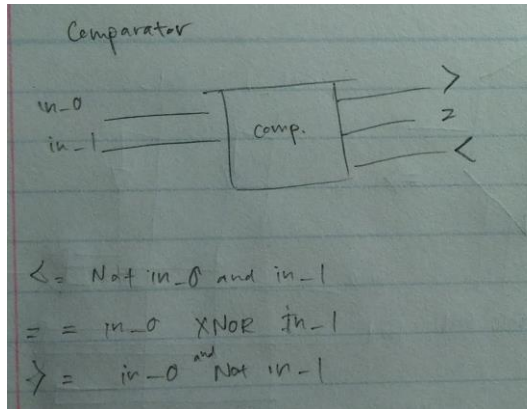 Comparator
in_0
in_1
comp.
>
=
<
< = Not in_0 and in_1
= = in_0 XNOR in_1
> = in_0 and Not in_1